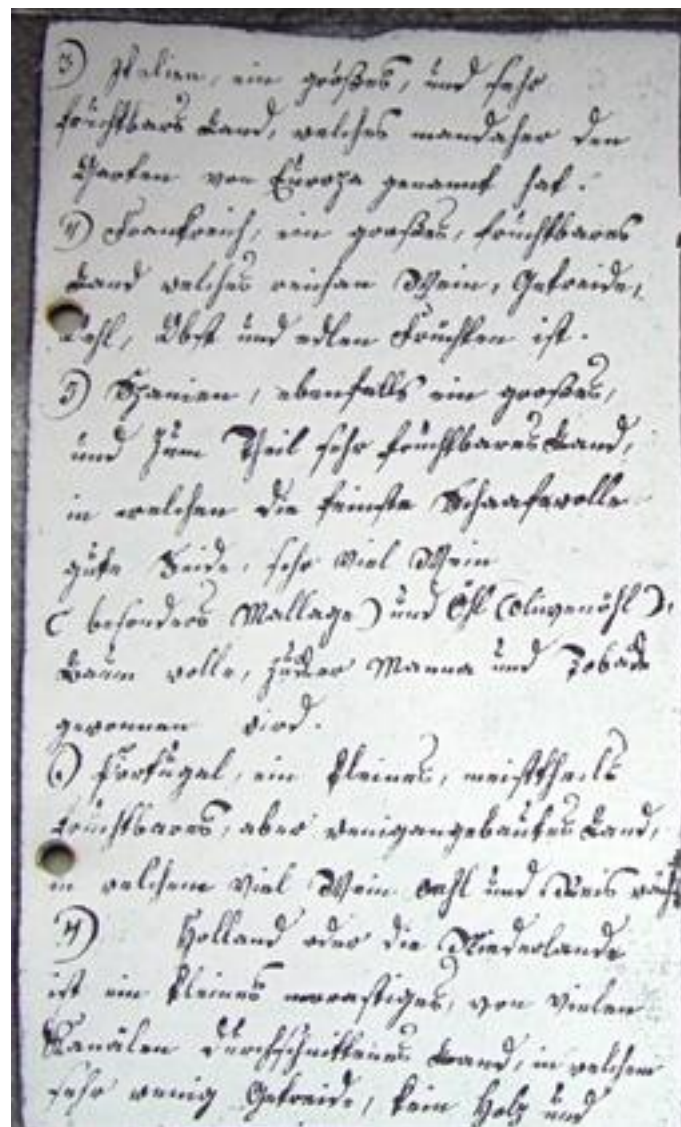 3) Italien, ein großes, und sehr
fruchtbars Land, welches man daher den
Garten von Europa genannt hat.
4) Frankreich, ein großes, fruchtbares
Land welches reich an Wein, Getreide,
Oehl, Obst und edlen Früchten ist.
5) Spanien, ebenfalls ein großes,
und zum Theil sehr fruchtbares Land,
in welchen die feinste Schaafwolle
gute Seide, sehr viel Wein
(besonders Mallage) und Öhl (Olivenöhl),
Baum wolle, Zucker Manna und Toback
gewonnen wird.
6) Portugal, ein kleines, meisttheils
fruchtbares, aber wenig angebautes Land,
in welchem viel Wein Oehl und Reis wächst
7) Holland oder die Niederlande
ist ein kleines morastiges, von vielen
Kanälen durchschnittenes Land, in welchem
sehr wenig Getreide, kein Holz und